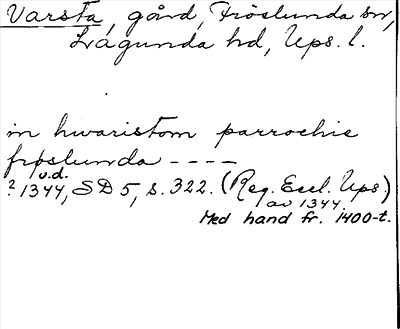 Varsta, gård, Fröslunda sn,
Lagunda hd, Ups. l.
in hwaristom parrochie
frøslunda ----
u.d.
? 1344, SD 5, s. 322. (Reg. Eccl. Ups.)
av 1344.
Med hand fr. 1400-t.